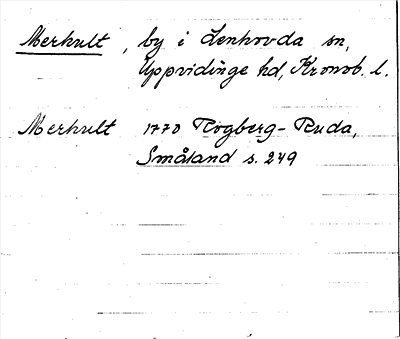 Merhult, by i Lenhovda sn,
Uppvidinge hd, Kronob. l.
Merhult 1770 Rogberg-Ruda,
Småland s. 249